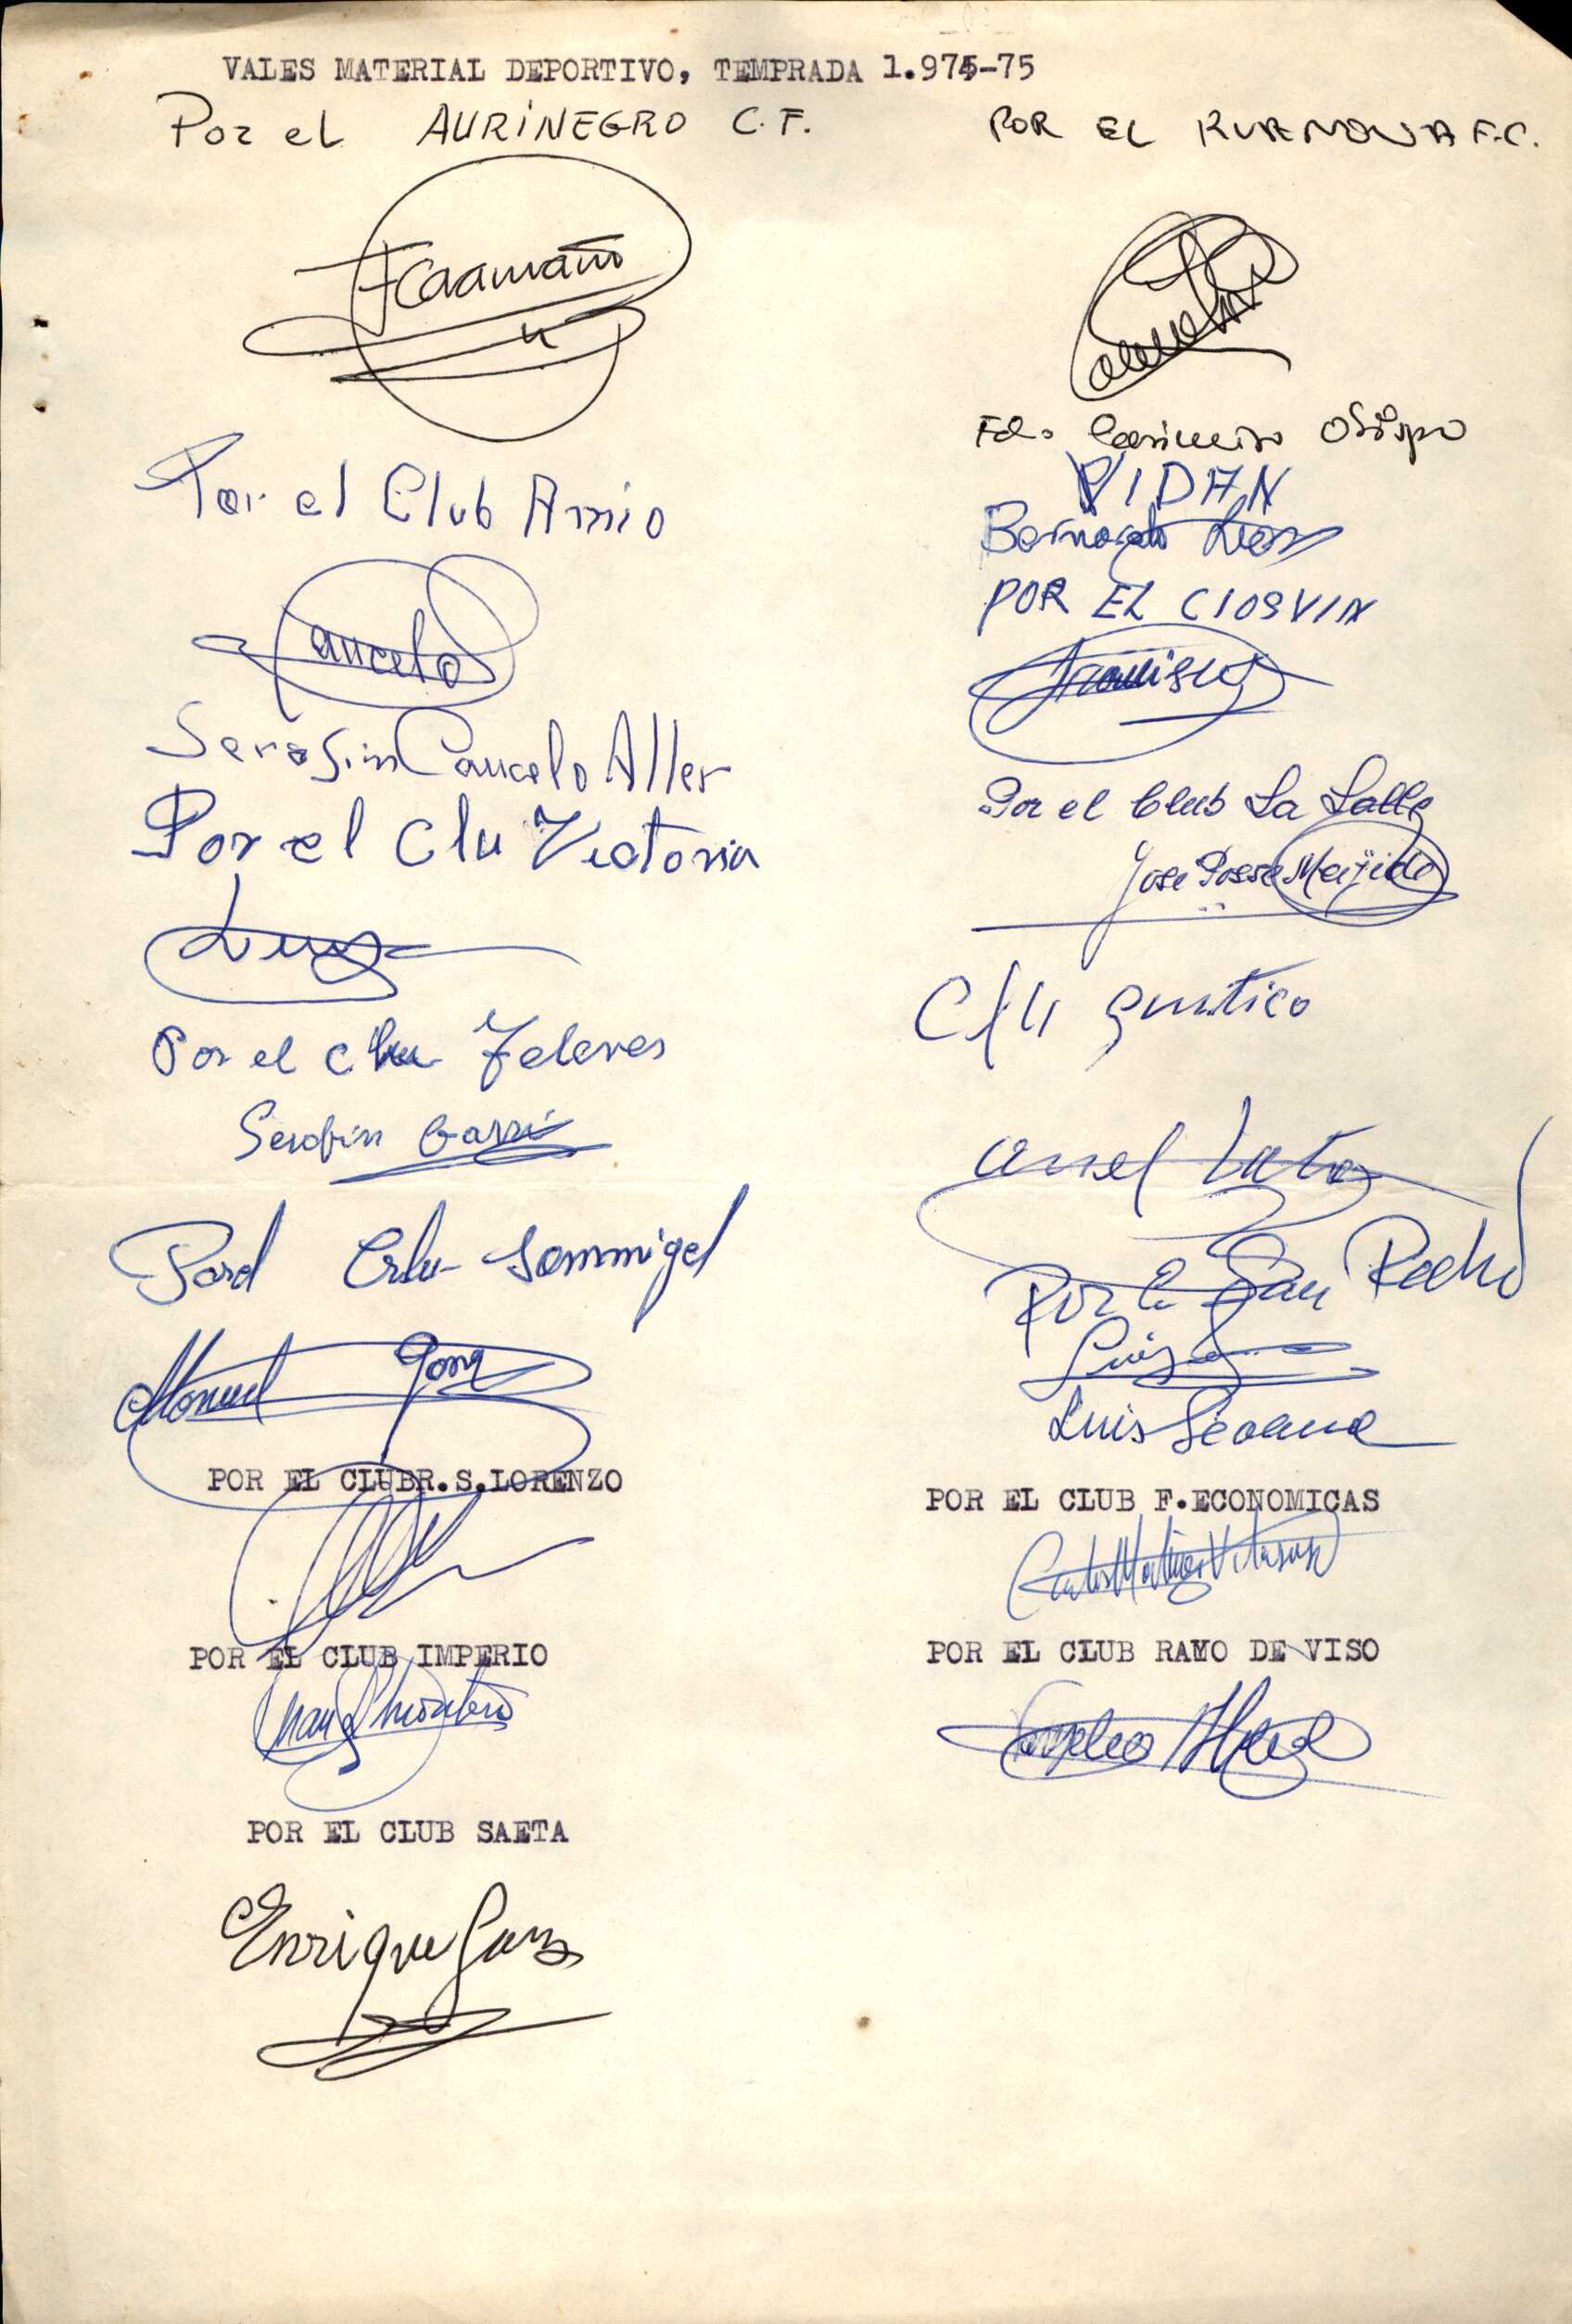 VALES MATERIAL DEPORTIVO, TEMPRADA 1.974-75
Por el AURINEGRO C.F.
FCaamaño
Por el Club Amio
Cancelo
Serafin Cancelo Aller
Por el Clu Victoria
Por el clu Feleves
Serafin Garri
Porel Crlu Sammigel
Manuel Gonz
POR EL CLUBR.S.LORENZO
POR EL CLUB IMPERIO
POR EL CLUB SAETA
Enrique Ganz
POR EL RURMONJA F.C.
Fdo Casimiro Obispo
VIDAN
Bernardo
POR EL CIOSVIN
Francisco
Por el Club La Salle
Jose Posse Meijide
Por el San Pedro
Luis
Luis Seoane
POR EL CLUB F.ECONOMICAS
Carlos Martinez
POR EL CLUB RAMO DE VISO